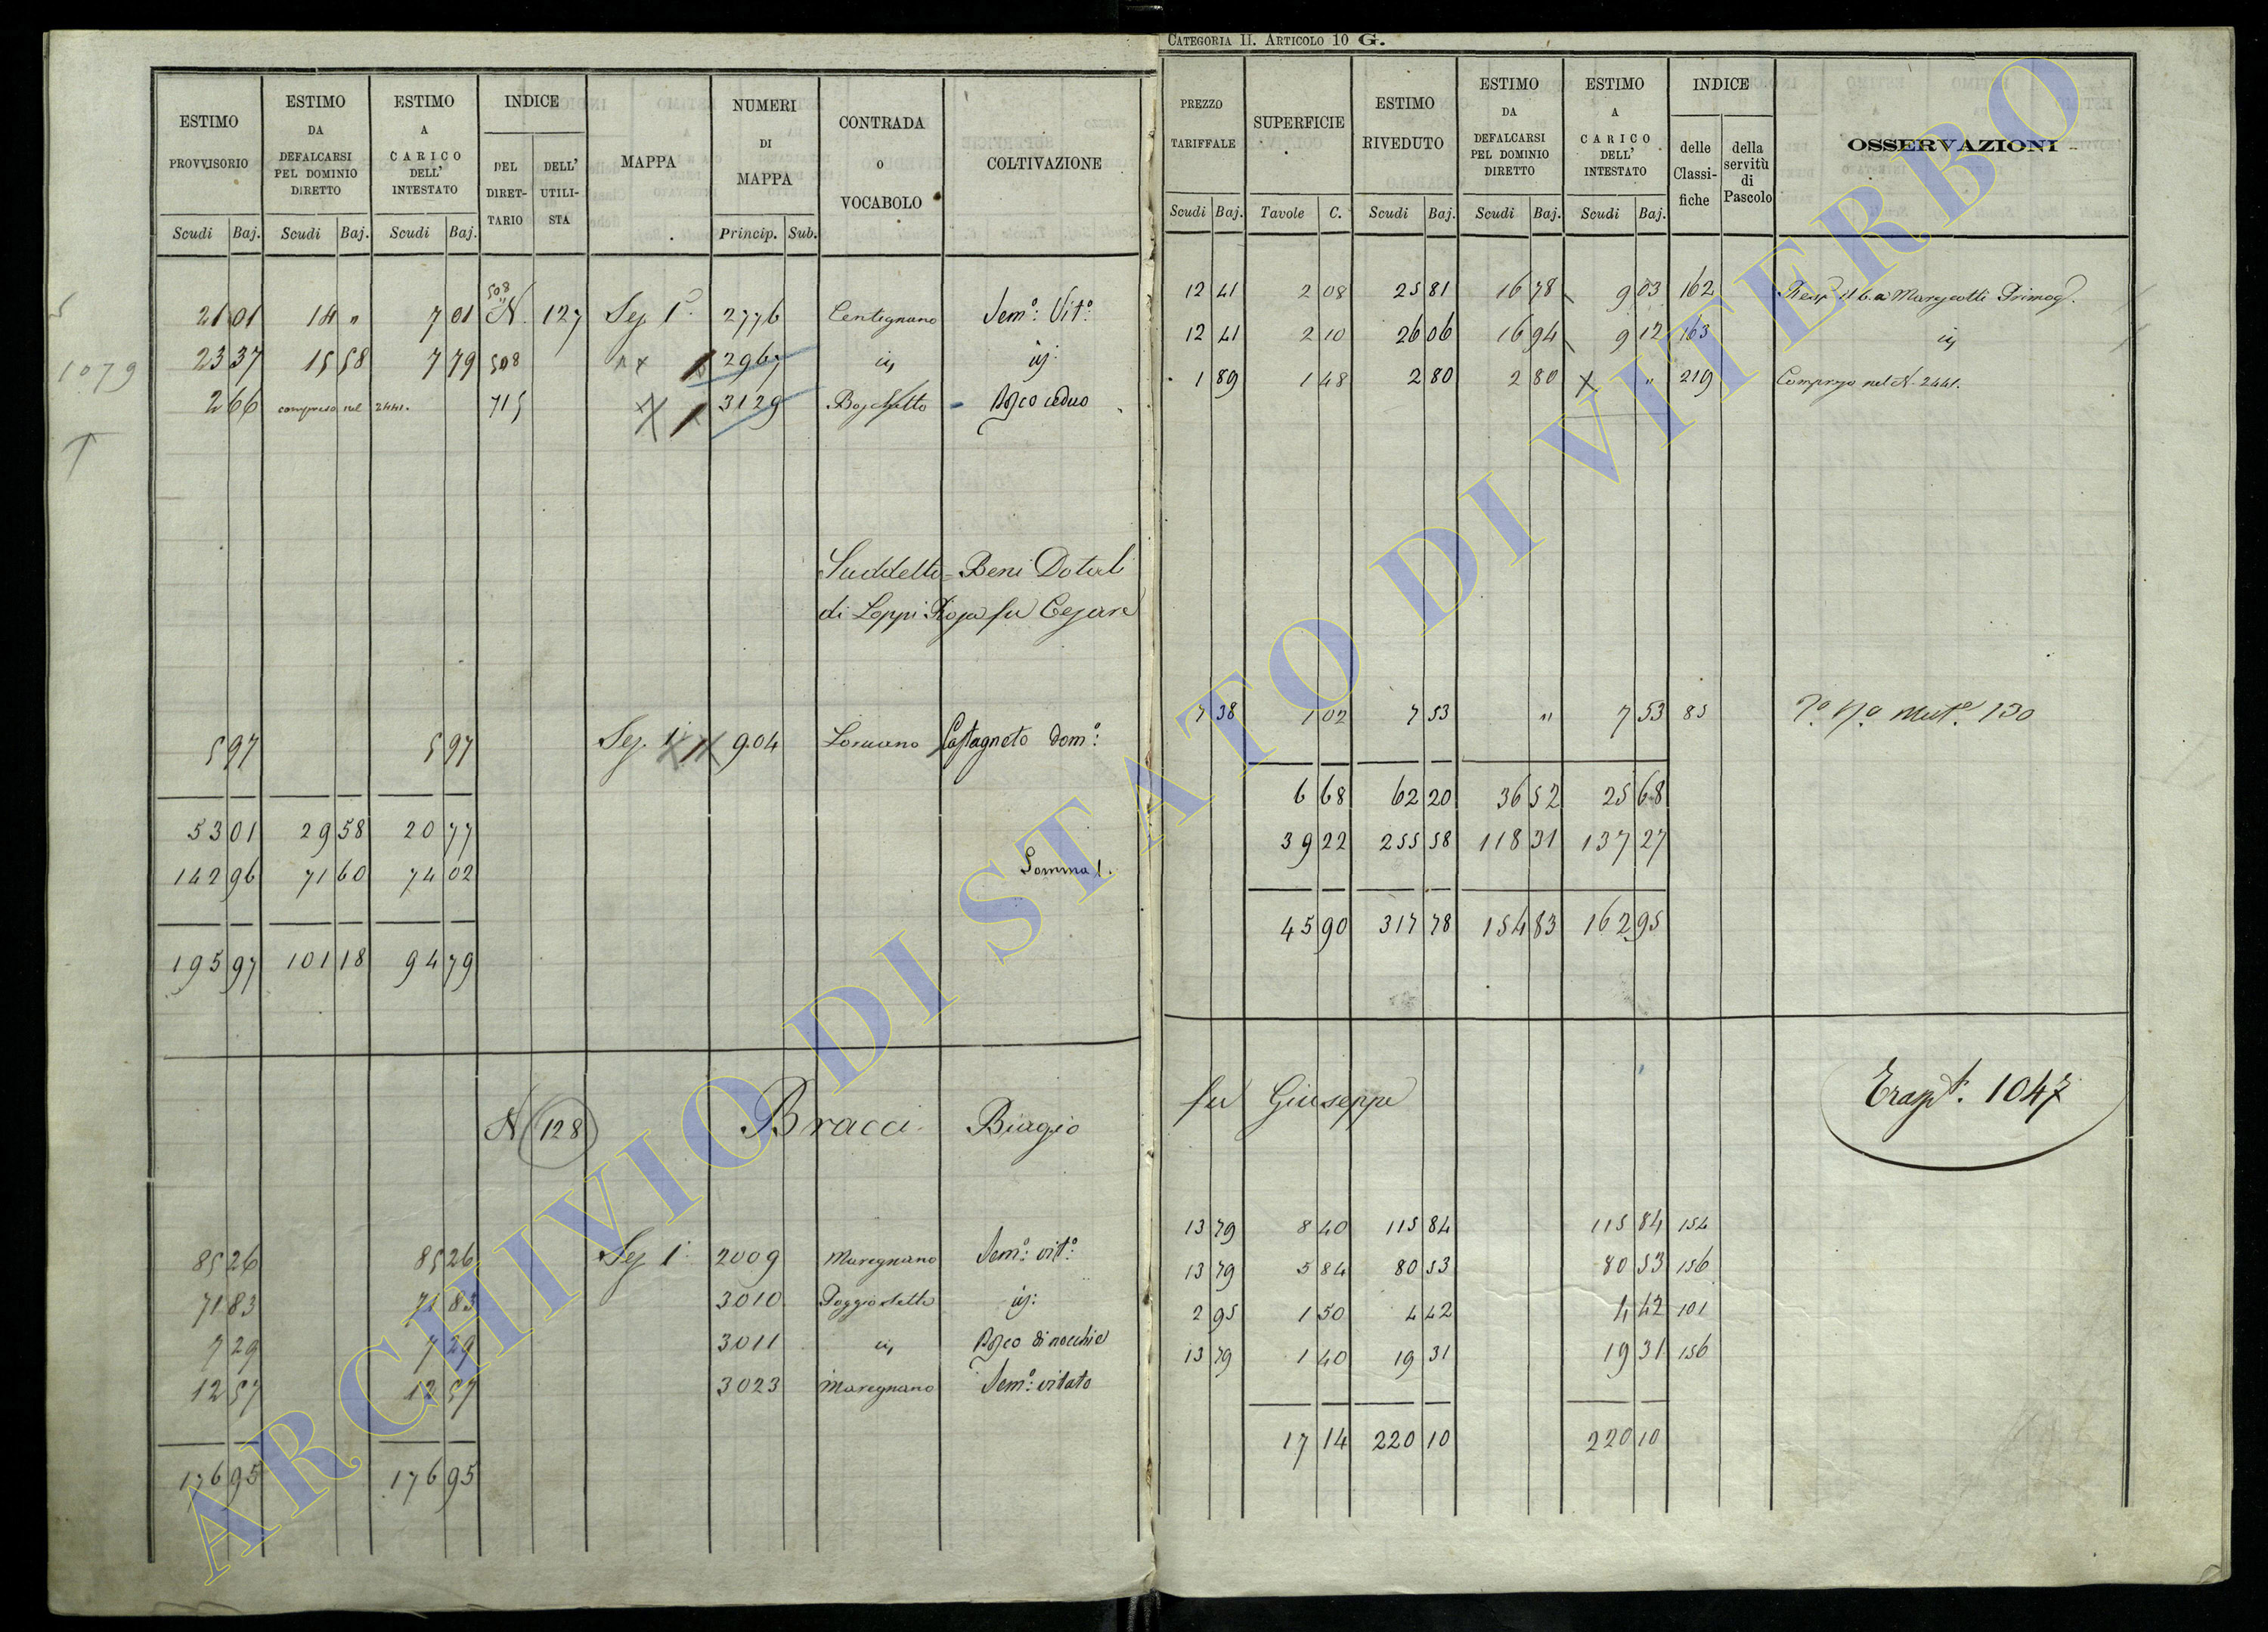 CATEGORIA II. ARTICOLO 10 G.
ESTIMO PROVVISORIO
ESTIMO DA DEFALCARSI PEL DOMINIO DIRETTO
ESTIMO A CARICO DELL' INTESTATO
INDICE
DEL DIRETTARIO
DELL' UTILISTA
MAPPA
NUMERI DI MAPPA
CONTRADA O VOCABOLO
COLTIVAZIONE
Scudi Baj. Scudi Baj. Scudi Baj. Princip. Sub.
508
21 01 14 " 7 01 N. 127 Sez. 1ª 2776 Centignano Sem.º Vit.º
1079
23 37 15 58 7 79 508 2967 id. id.
2 66 compreso nel 2441. 715 3129 Boschetto Bosco ceduo
Suddetto = Beni Dotali
di Leppi Rosa fu Cesare
5 97 5 97 Sez. 1ª 904 Castagneto dom.º
53 01 29 58 20 77
142 96 71 60 74 02 Somma
195 97 101 18 94 79
N 128 Bracci Biagio
85 26 85 26 Sez 1ª 2009 Maregnano Sem.º vit.º
71 83 71 83 3010 id.
7 29 7 29 3011 id. Bosco di nocchie
12 57 12 57 3023 Maregnano Sem.º vitato
176 95 176 95
PREZZO TARIFFALE
SUPERFICIE
ESTIMO RIVEDUTO
ESTIMO DA DEFALCARSI PEL DOMINIO DIRETTO
ESTIMO A CARICO DELL' INTESTATO
INDICE
delle Classifiche
della servitù di Pascolo
OSSERVAZIONI
Scudi Baj. Tavole C. Scudi Baj. Scudi Baj. Scudi Baj.
12 41 2 08 25 81 16 78 9 03 162 Primog.
12 41 2 10 26 06 16 94 9 12 163 id.
1 89 1 48 2 80 2 80 " 219 Compreso nel N. 2441.
7 38 1 02 7 53 " 7 53 85 Mut.ª 130
6 68 62 20 36 52 25 68
39 22 255 58 118 31 137 27
45 90 317 78 154 83 162 95
fu Giuseppe
Trasp.to 1047
13 79 8 40 115 84 115 84 154
13 79 5 84 80 53 80 53 156
2 95 1 50 4 42 4 42 101
13 79 1 40 19 31 19 31 156
17 14 220 10 220 10
ARCHIVIO DI STATO DI VITERBO